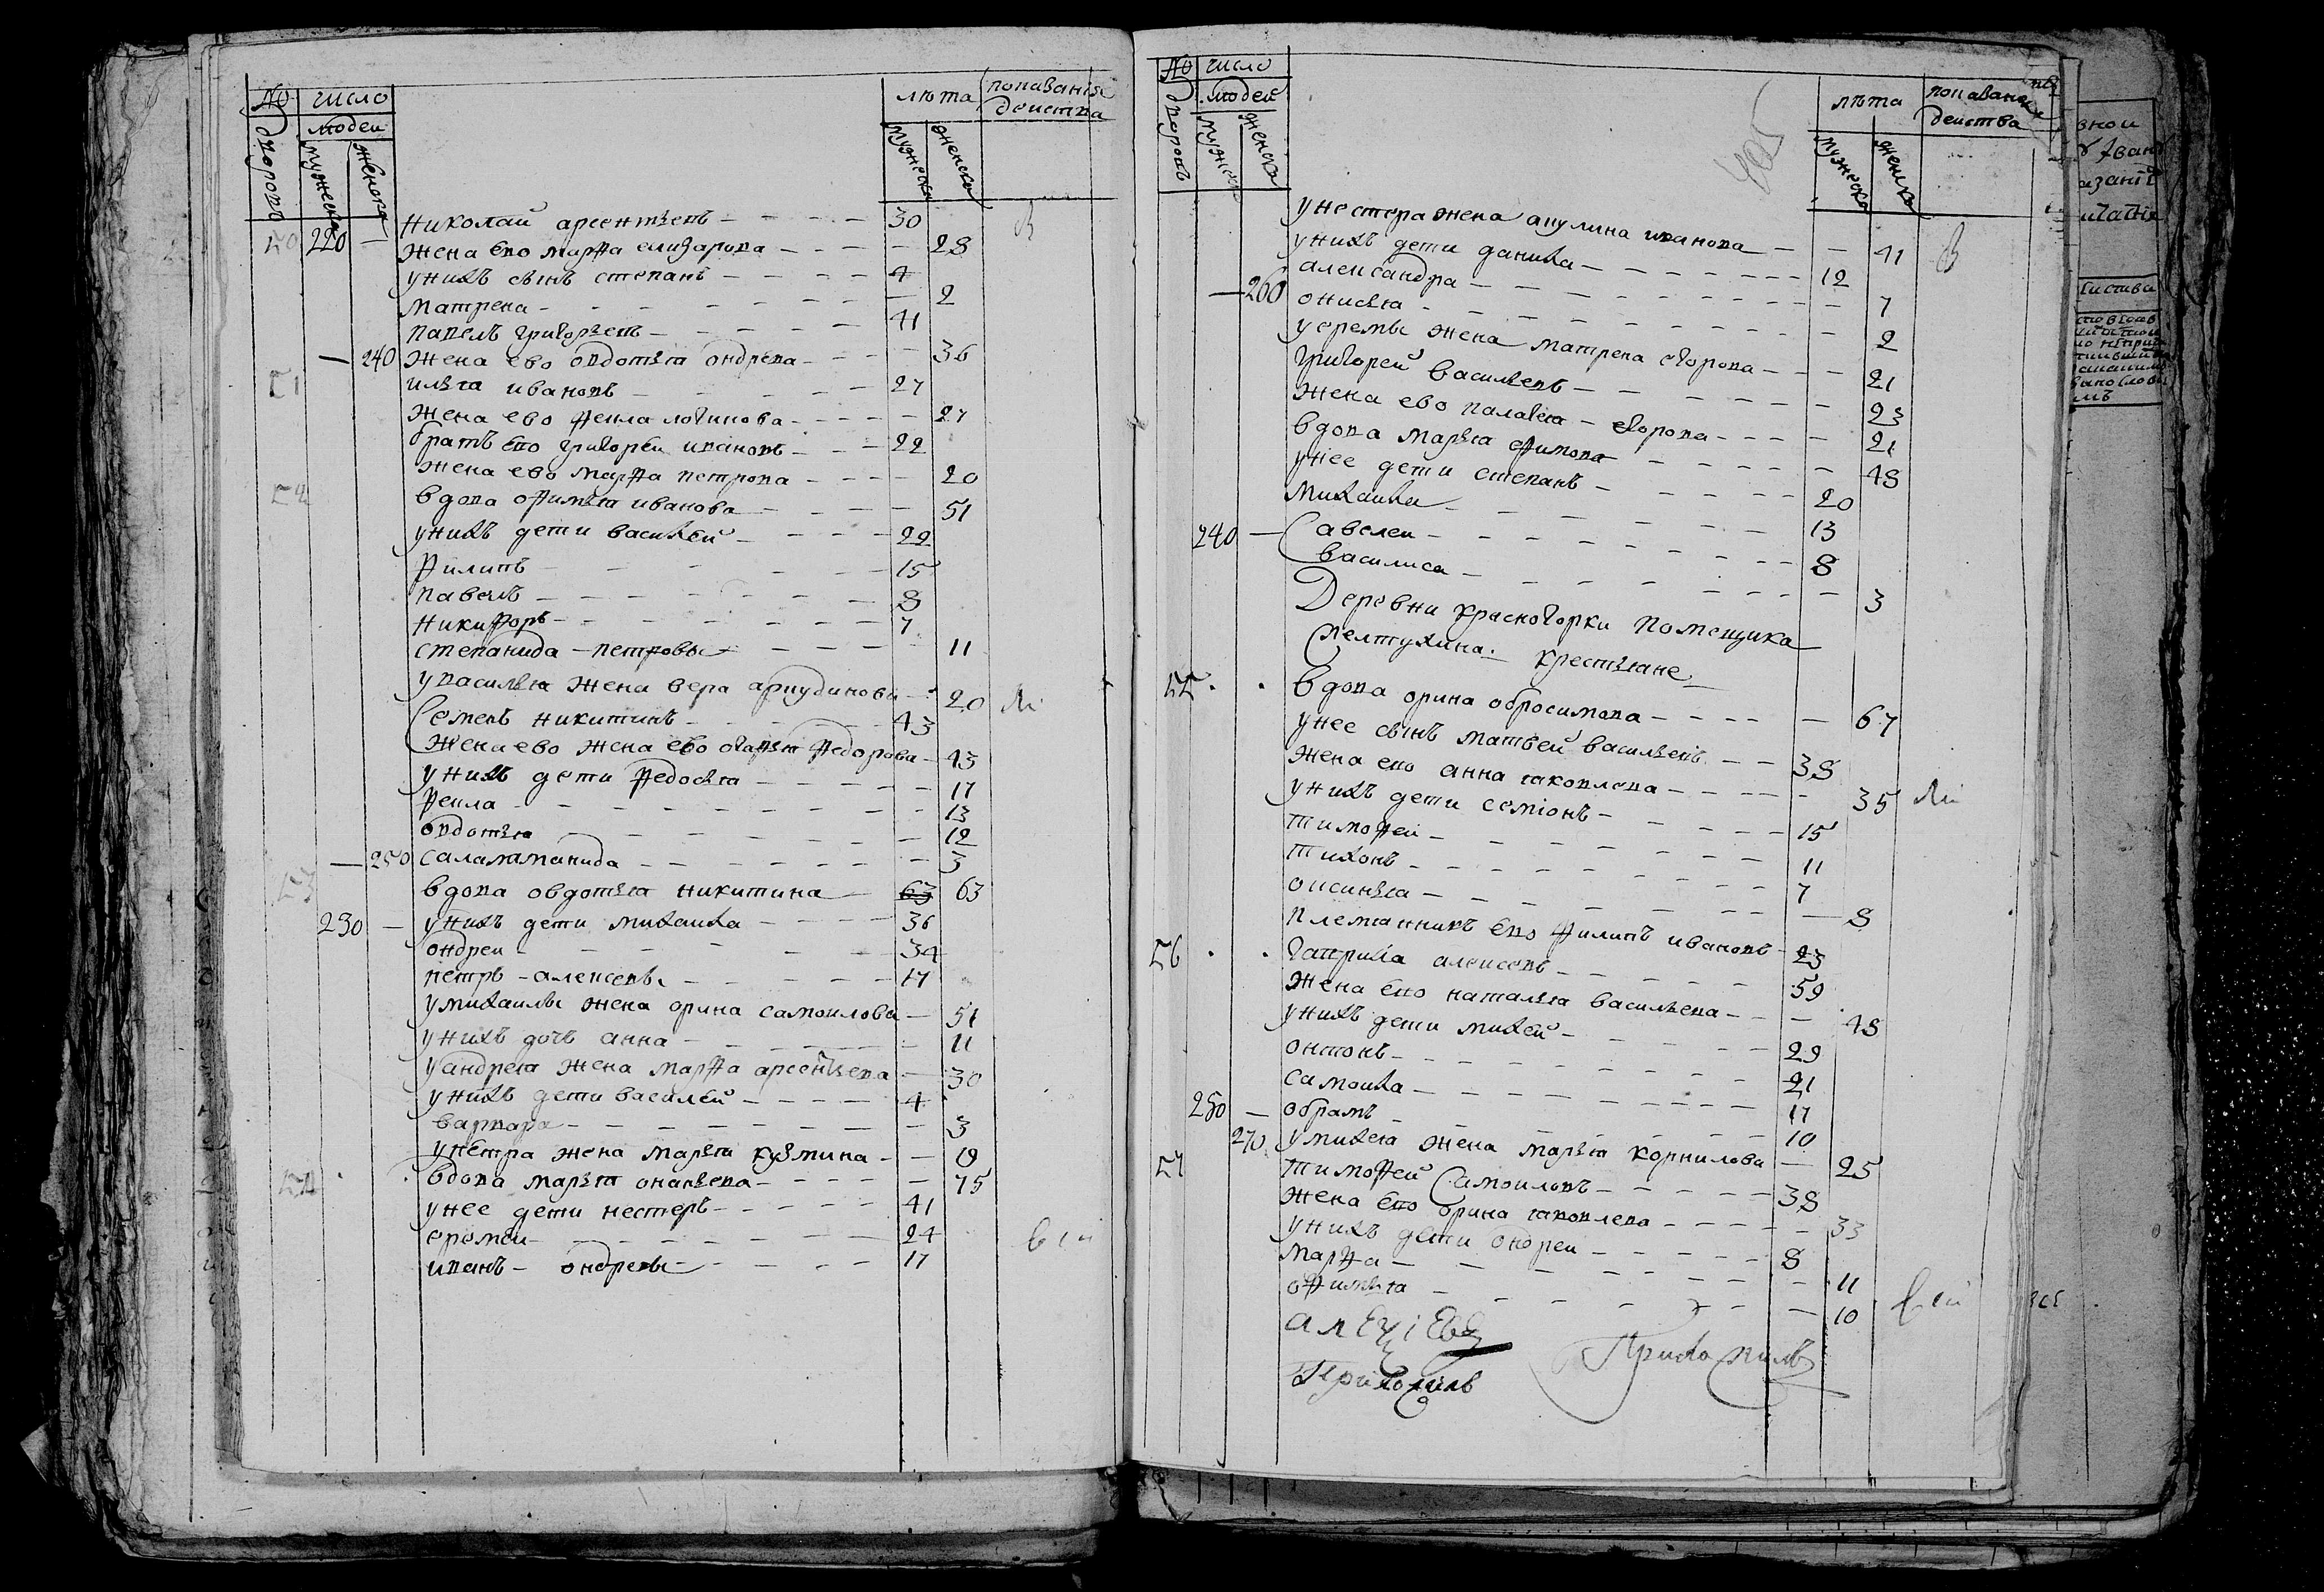 № число лѣта попаваніе
дворовъ людеи действа
мужеска женска мужеска женска
50 220 — николай арсентьевъ — 30
жена ево марфа елизарова — 28
унихъ сынъ степанъ — 4
матрена — 2
павелъ григорьевъ — 41
— 240 жена ево овдотья ондрева — 36
51 илья ивановъ — 27
жена ево фекла логинова — 27
братъ ево григореи ивановъ — 22
жена ево марфа петрова — 20
52 вдова офимья иванова — 51
унихъ дети василей — 22
филипъ — 15
павелъ — 8
никифоръ — 7
степанида — петровы — 11
увасилья жена вера 20
Семенъ никитинъ — 43
жена ево жена ево огафья федорова — 43
унихъ дети федосья — 17
фекла — 13
овдотья — 12
— 250 саламманида — 3
53 вдова овдотья никитина — 63 63
230 — унихъ дети михаила — 36
ондреи — 34
петръ — алексевы — 17
умихаилы жена орина самоилова — 51
унихъ дочь анна — 11
уандрея жена марфа арсентьева — 30
унихъ дети василей — 4
варвара — 3
упетра жена марья кузмина — 19
54 вдова марья онаньева — 75
унее дети нестеръ — 41
еремеи — 24
иванъ — ондревы — 17
№ число лѣта попаваніе
дворовъ людей действа
мужеска женска мужеска женска
унестера жена акулина иванова — 41
унихъ дети данила — 12
александра — 7
— 260 онисья — 2
уеремы жена матрена егорова — 21
григорей васильевъ — 23
жена ево палагея — егорова — 21
вдова марья ефимова — 48
унее дети степанъ — 20
михаила — 13
240 — Савелеи — 8
василиса — 3
Деревни красногорки помещика
крестьяне
55 вдова орина обросимова — 67
унее сынъ матвей васильевъ — 38
жена ево анна яковлева — 35
унихъ дети семіонъ — 15
тимофеи — 11
тихонъ — 7
оксинья — 8
племянникъ ево филипъ ивановъ — 23
56 гаврила алексевъ — 59
жена ево наталья васильева — 48
унихъ дети михей — 29
онтонъ — 21
самоила — 17
250 — обрамъ — 10
270 умихея жена марья корнилова — 25
57 тимофей Самоиловъ — 38
жена ево орина яковлева — 33
унихъ дети ондреи — 8
марфа — 11
офимья — 10